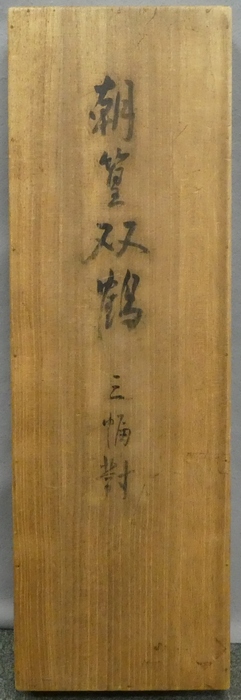 朝篁双鶴 三幅對